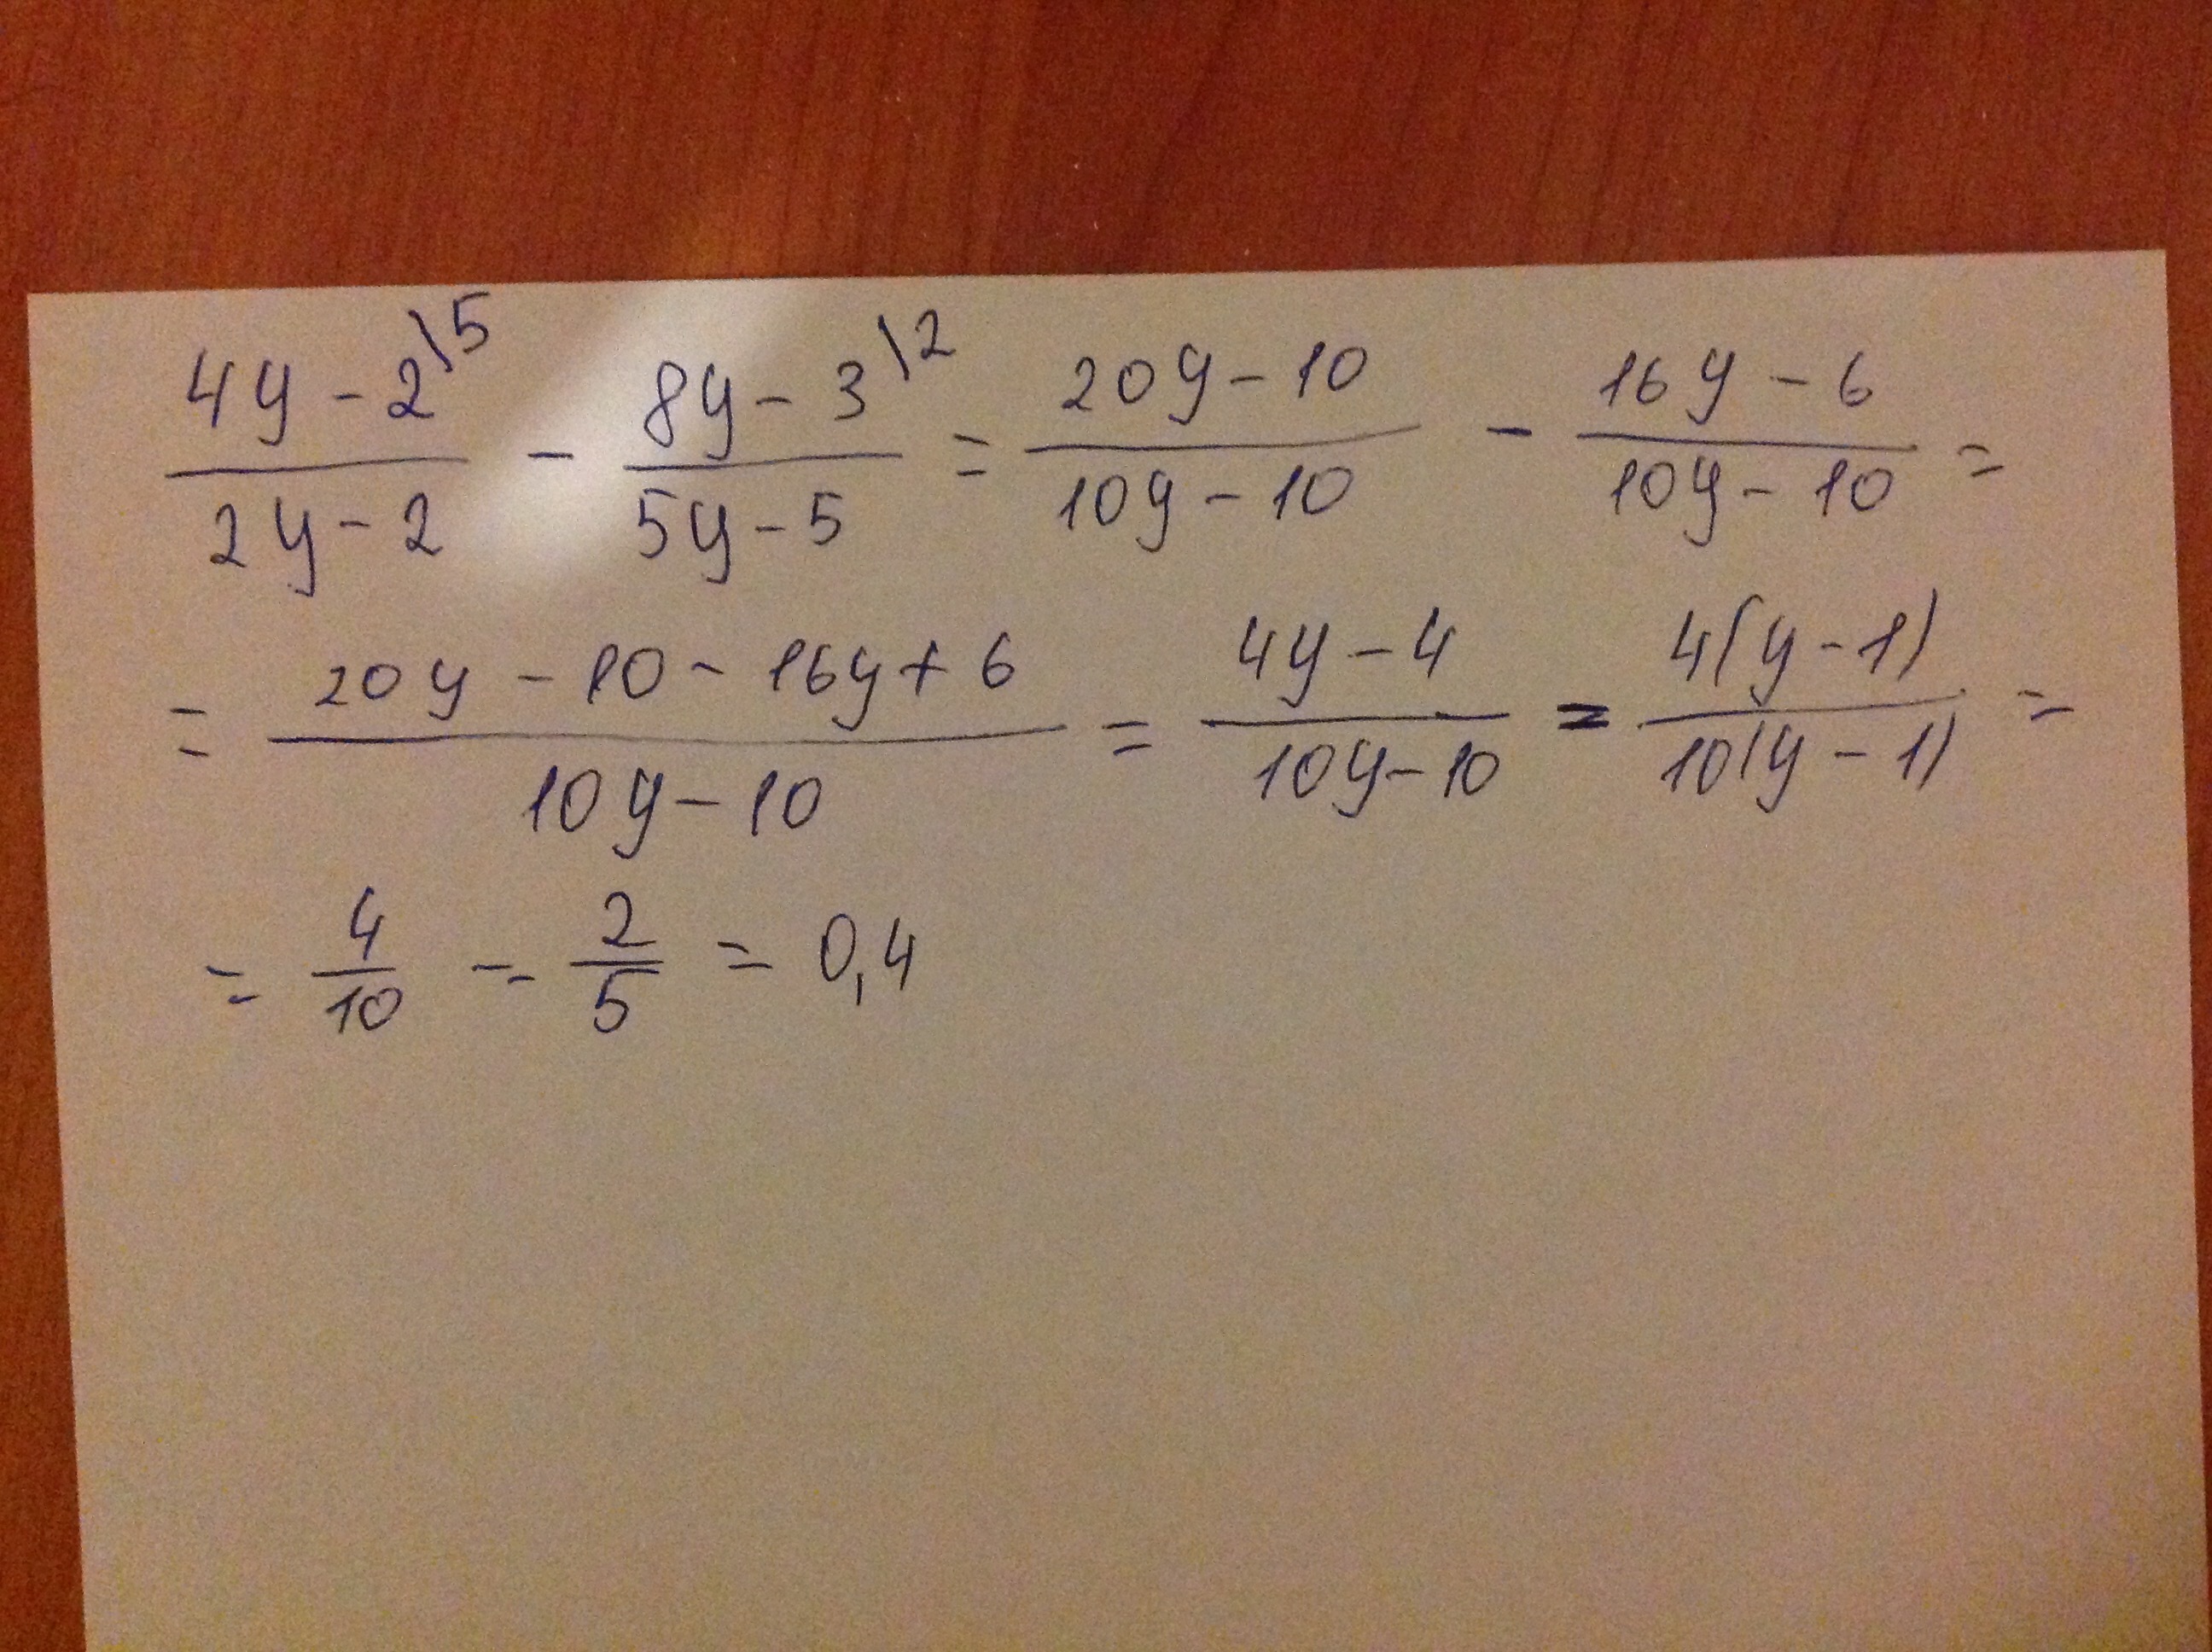 (4y - 2)\5 / (2y - 2) - (8y - 3)\2 / (5y - 5) = (20y - 10) / (10y - 10) - (16y - 6) / (10y - 10) =
= (20y - 10 - 16y + 6) / (10y - 10) = (4y - 4) / (10y - 10) = 4(y - 1) / 10(y - 1) =
= 4/10 = 2/5 = 0,4